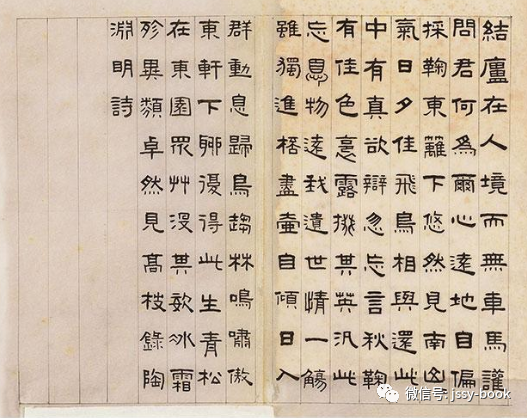 結廬在人境而無車馬讙
問君何為爾心遠地自偏
採鞠東籬下悠然見南山
氣日夕佳飛鳥相與還此
中有真欲辯忽忘言秋鞠
有佳色裛露掇其英汎此
忘憂物遠我遺世情一觴
雖獨進桮盡壺自傾日入
群動息歸鳥趨林鳴嘯傲
東軒下聊復得此生青松
在東園眾艸沒其姿冰霜
殄異類卓然見高枝錄陶
淵明詩
微信号: jssy-book